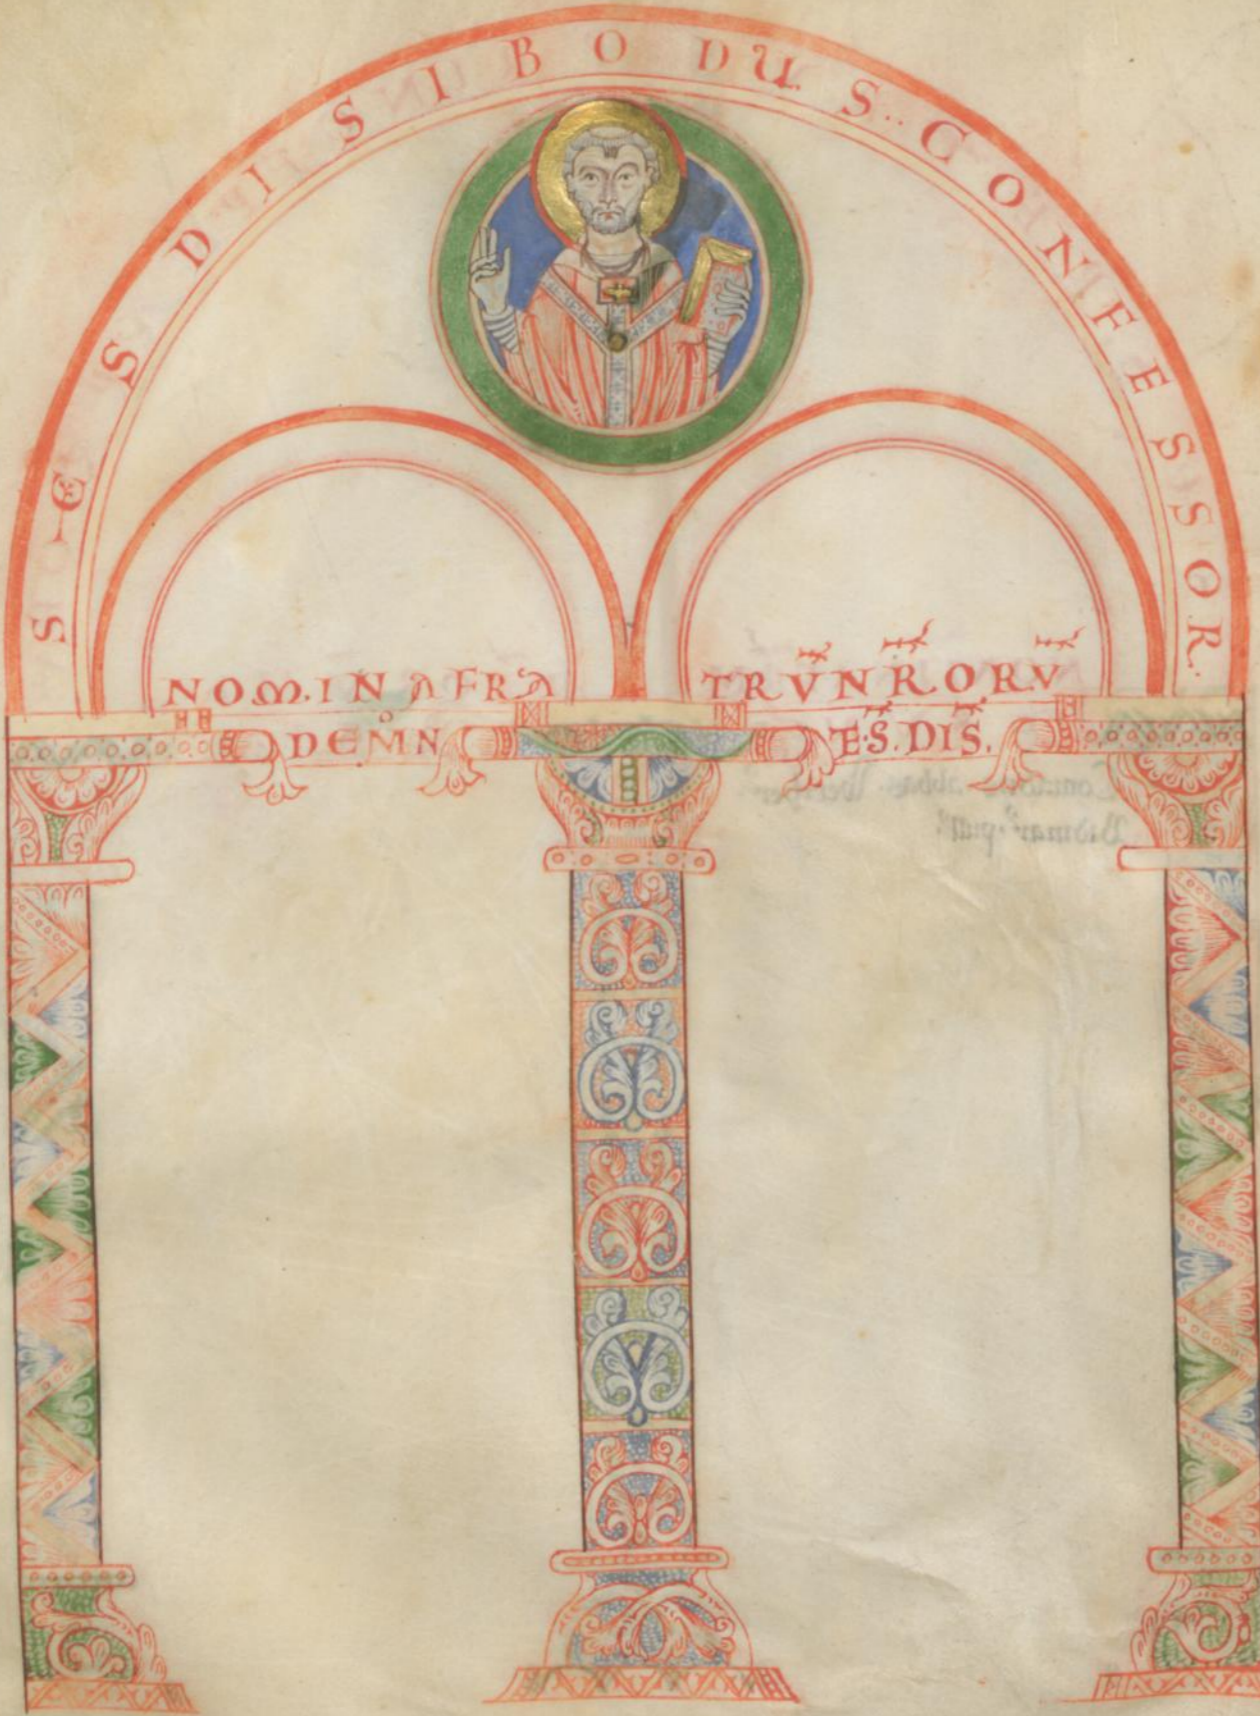 SC̄S DISIBODUS. CONFESSOR.
NOM.INA FRATRV̄ N̄R.ORV̄
DE MͦN T̄.E.S̄. DIS̄.